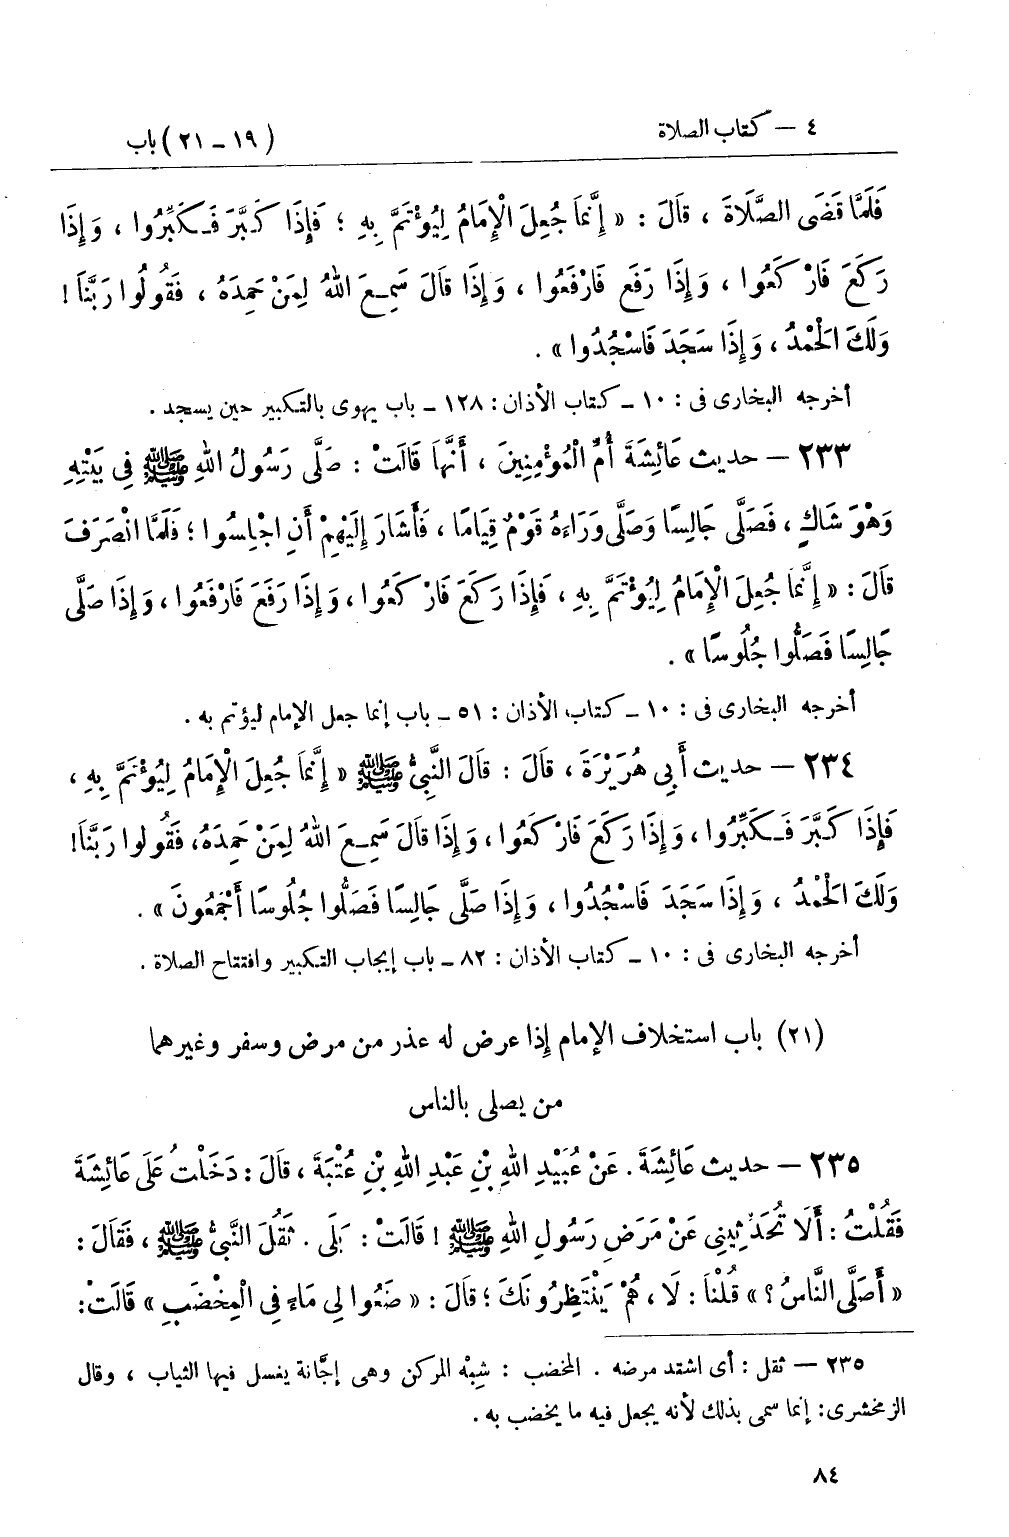 ٤ — كتاب الصلاة (١٩ – ٢١) باب
فَلَمَّا قَضَى الصَّلَاةَ ، قَالَ : « إِنَّمَا جُعِلَ الْإِمَامُ لِيُؤْتَمَّ بِهِ ؛ فَإِذَا كَبَّرَ فَكَبِّرُوا ، وَإِذَا
رَكَعَ فَارْكَعُوا ، وَإِذَا رَفَعَ فَارْفَعُوا ، وَإِذَا قَالَ سَمِعَ اللهُ لِمَنْ حَمِدَهُ ، فَقُولُوا رَبَّنَا !
وَلَكَ الْحَمْدُ ، وَإِذَا سَجَدَ فَاسْجُدُوا » .
أخرجه البخارى فى : ١٠ – كتاب الأذان : ١٢٨ – باب يهوى بالتكبير حين يسجد .
٢٣٣ – حديث عَائِشَةَ أُمِّ الْمُؤْمِنِينَ ، أَنَّهَا قَالَتْ : صَلَّى رَسُولُ اللهِ ﷺ فِى بَيْتِهِ
وَهْوَ شَاكٍ ، فَصَلَّى جَالِسًا وَصَلَّى وَرَاءَهُ قَوْمٌ قِيَامًا ، فَأَشَارَ إِلَيْهِمْ أَنِ اجْلِسُوا ؛ فَلَمَّا انْصَرَفَ
قَالَ : « إِنَّمَا جُعِلَ الْإِمَامُ لِيُؤْتَمَّ بِهِ ، فَإِذَا رَكَعَ فَارْكَعُوا ، وَإِذَا رَفَعَ فَارْفَعُوا ، وَإِذَا صَلَّى
جَالِسًا فَصَلُّوا جُلُوسًا » .
أخرجه البخارى فى : ١٠ – كتاب الأذان : ٥١ – باب إنما جعل الإمام ليؤتم به .
٢٣٤ – حديث أَبِي هُرَيْرَةَ ، قَالَ : قَالَ النَّبِيُّ ﷺ « إِنَّمَا جُعِلَ الْإِمَامُ لِيُؤْتَمَّ بِهِ ،
فَإِذَا كَبَّرَ فَكَبِّرُوا ، وَإِذَا رَكَعَ فَارْكَعُوا ، وَإِذَا قَالَ سَمِعَ اللهُ لِمَنْ حَمِدَهُ ، فَقُولُوا رَبَّنَا!
وَلَكَ الْحَمْدُ ، وَإِذَا سَجَدَ فَاسْجُدُوا ، وَإِذَا صَلَّى جَالِسًا فَصَلُّوا جُلُوسًا أَجْمَعُونَ » .
أخرجه البخارى فى : ١٠ – كتاب الأذان : ٨٢ – باب إيجاب التكبير وافتتاح الصلاة .
(٢١) باب استخلاف الإمام إذا عرض له عذر من مرض وسفر وغيرهما
من يصلى بالناس
٢٣٥ – حديث عَائِشَةَ . عَنْ عُبَيْدِ اللهِ بْنِ عَبْدِ اللهِ بْنِ عُتْبَةَ ، قَالَ : دَخَلْتُ عَلَى عَائِشَةَ
فَقُلْتُ : أَلَا تُحَدِّثِينِى عَنْ مَرَضِ رَسُولِ اللهِ ﷺ ! قَالَتْ : بَلَى . ثَقُلَ النَّبِيُّ ﷺ ، فَقَالَ :
« أَصَلَّى النَّاسُ ؟ » قُلْنَا : لَا ، هُمْ يَنْتَظِرُونَكَ ؛ قَالَ : « ضَعُوا لِى مَاءً فِى الْمِخْضَبِ » قَالَتْ :
٢٣٥ – ثقل : أى اشتد مرضه . المخضب : شِبْه المركن وهى إجَّانة يغسل فيها الثياب ، وقال
الزمخشرى : إنما سمى بذلك لأنه يجعل فيه ما يخضب به .
٨٤